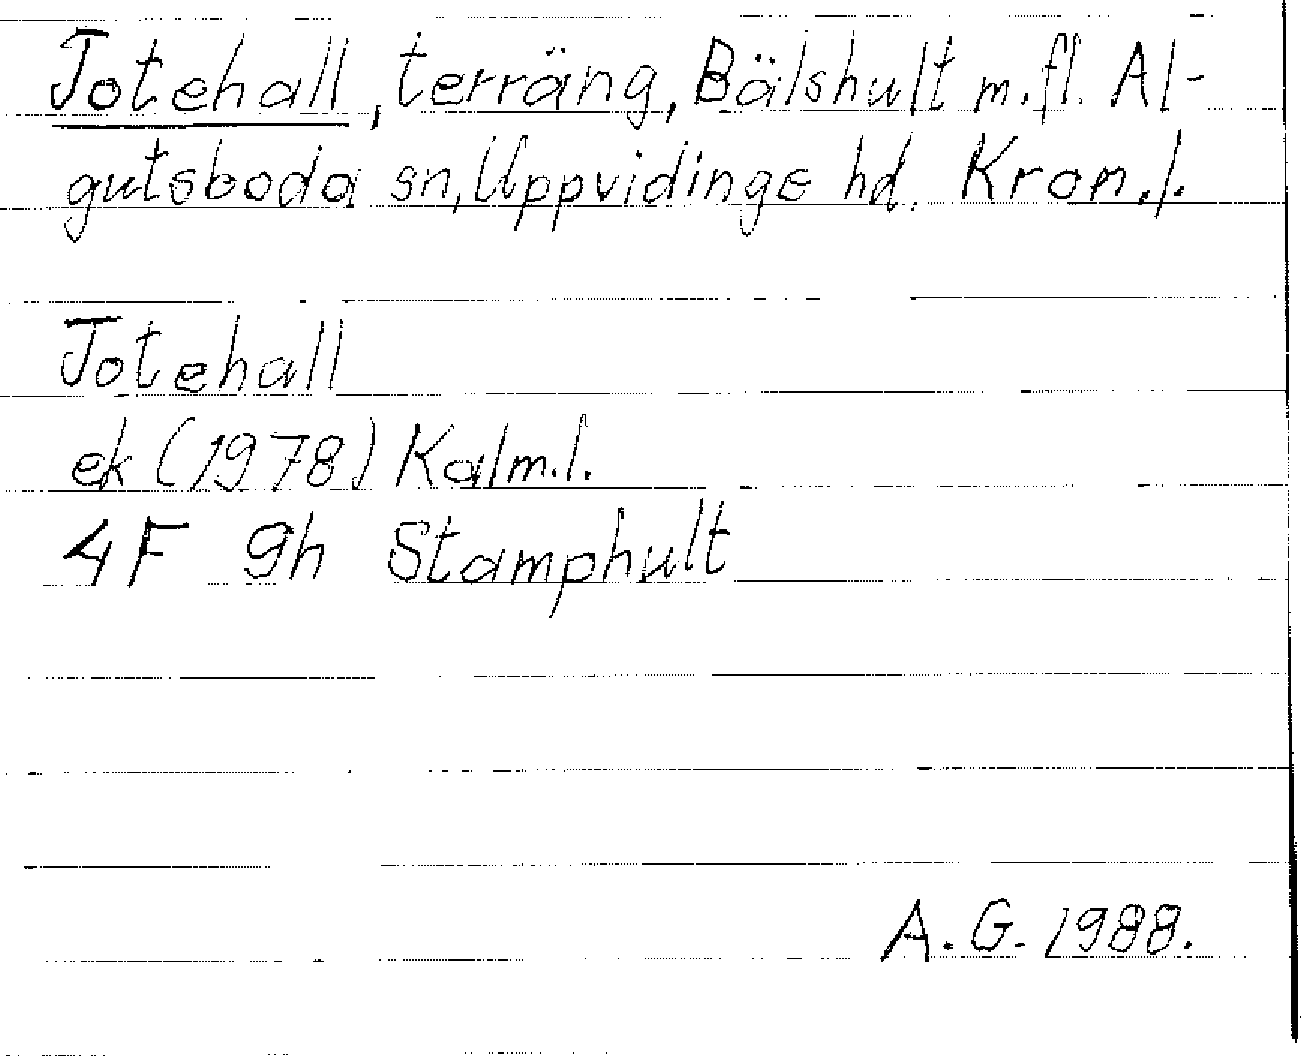 Totehall, terräng, Bälshult m.fl. Al-
gutsboda sn, Uppvidinge hd. Kron.l.
Totehall
ek (1978) Kalm.l.
4F 9h Stamphult
A.G. 1988.